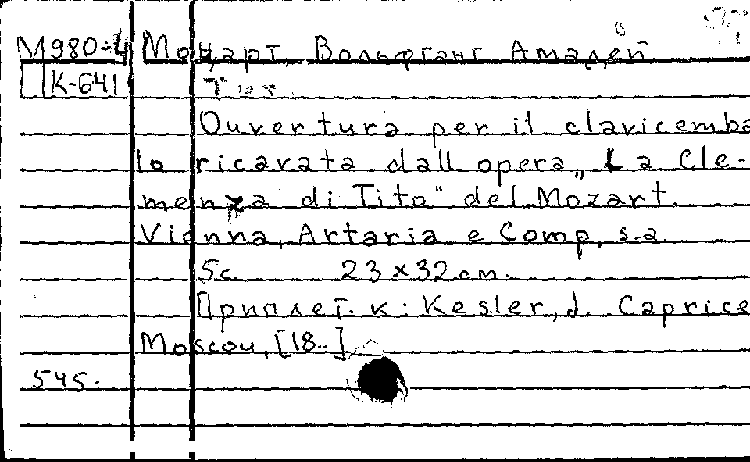 M980-4 Моцарт, Вольфганг Амадей
K-641 Тит.
Ouvertura per il clavicemba
lo ricavata dall opera„ La Cle-
menza di Tito" del Mozart.
Vienna, Artaria e Comp, s.a.
5c. 23x32 cm.
Приплет. к: Kesler, J. Caprice
Moscou, [18..]
545.